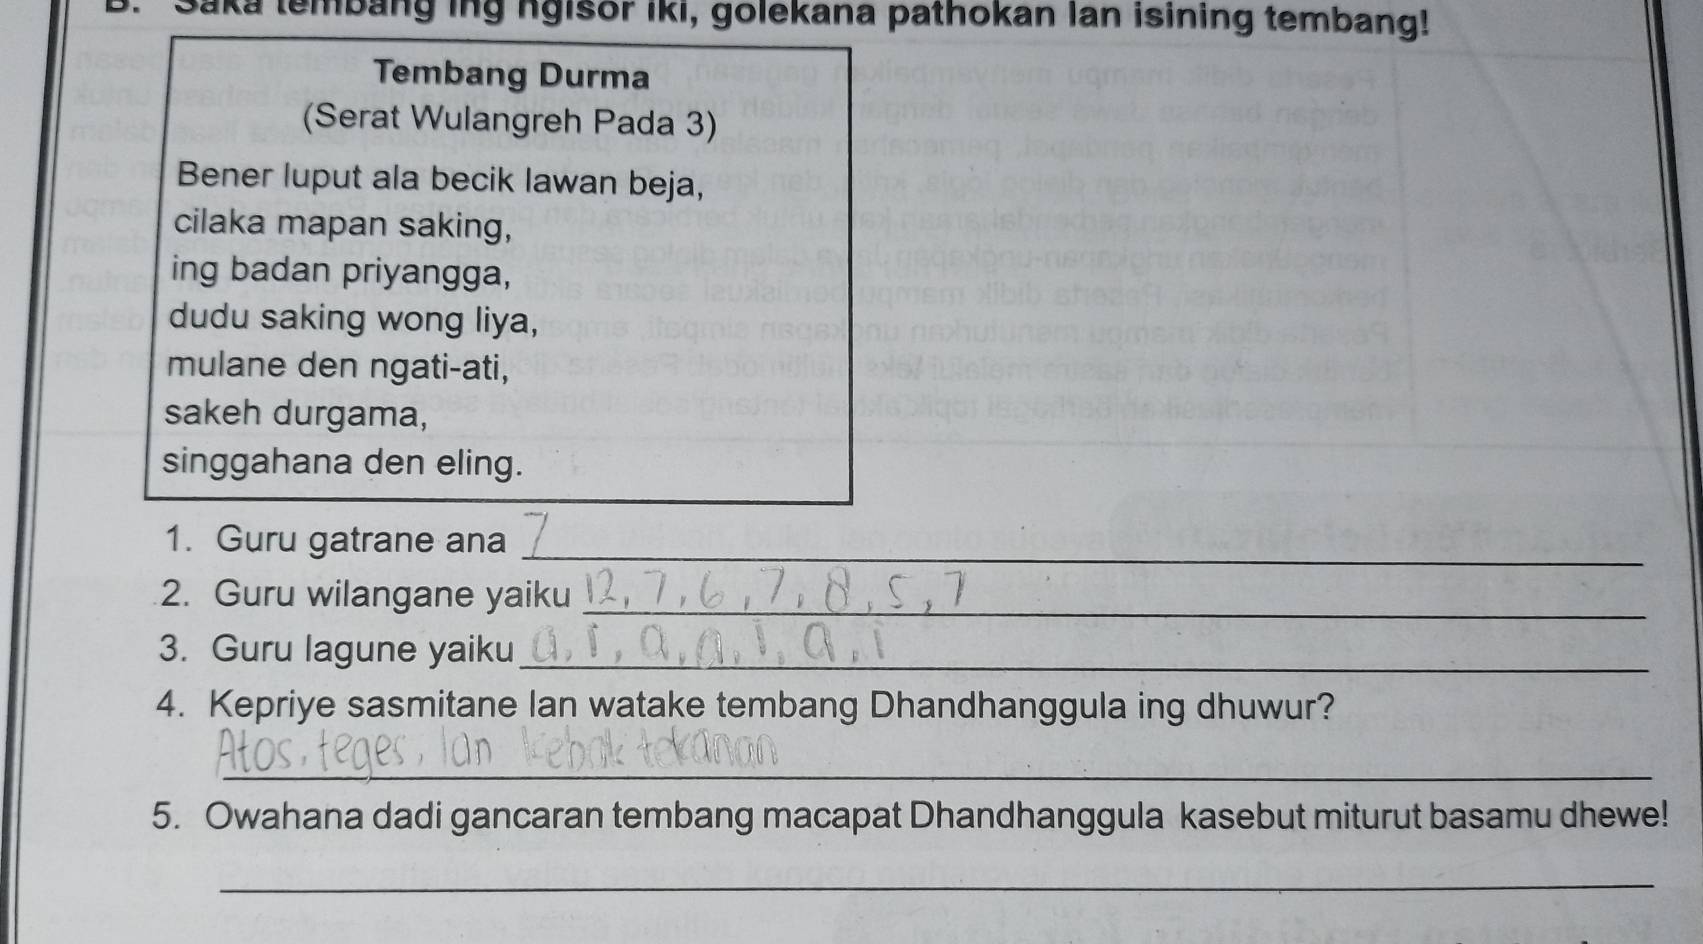 B. Saka tembang ing ngisor iki, golekana pathokan lan isining tembang!
Tembang Durma
(Serat Wulangreh Pada 3)
Bener luput ala becik lawan beja,
cilaka mapan saking,
ing badan priyangga,
dudu saking wong liya,
mulane den ngati-ati,
sakeh durgama,
singgahana den eling.
1. Guru gatrane ana 7
2. Guru wilangane yaiku 12, 7, 6, 7, 8, 5, 7
3. Guru lagune yaiku a, i, a, a, i, a, i
4. Kepriye sasmitane lan watake tembang Dhandhanggula ing dhuwur?
Atos, teges, lan kebak tekanan
5. Owahana dadi gancaran tembang macapat Dhandhanggula kasebut miturut basamu dhewe!